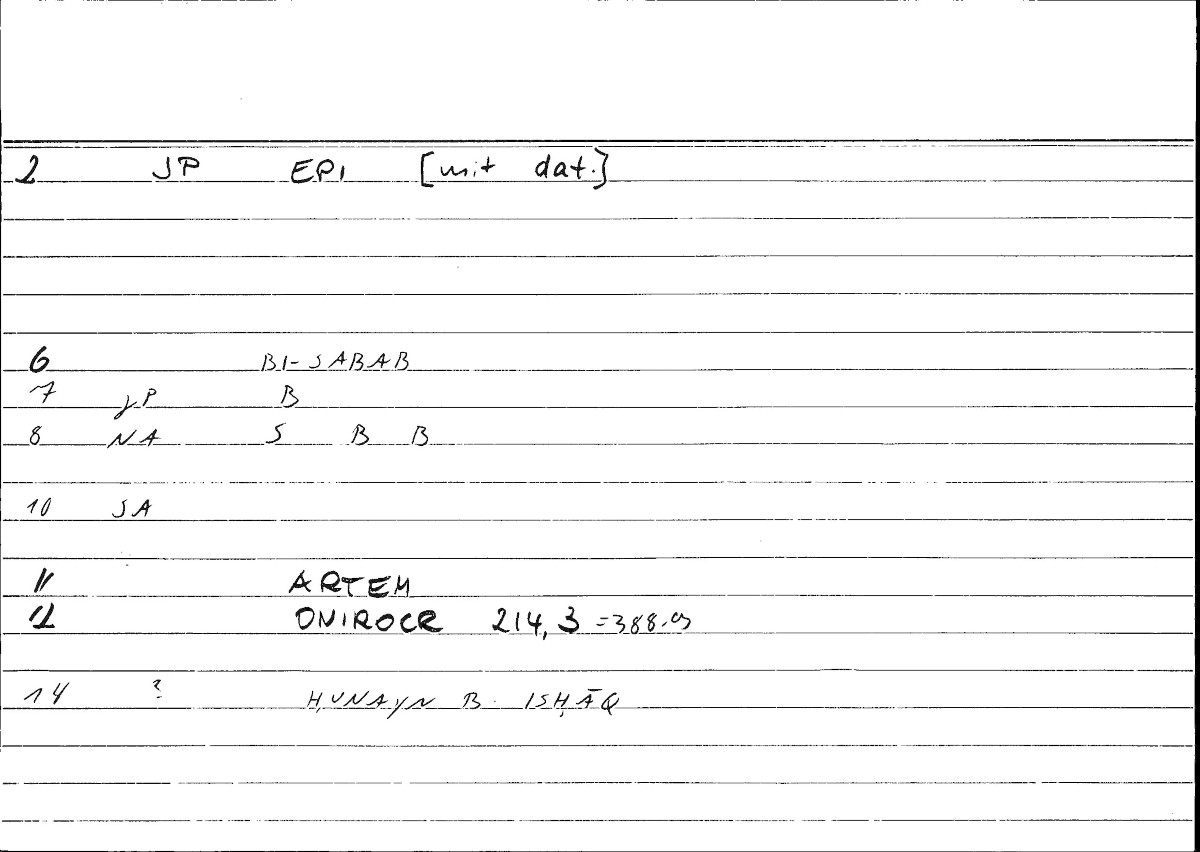 2 JP EPI [mit dat.]
6 BI-SABAB
7 JP B
8 NA S B B
10 SA
11 ARTEM
12 ONIROCR 214,3 =388.
14 ? ḤUNAYN B. ISḤĀQ